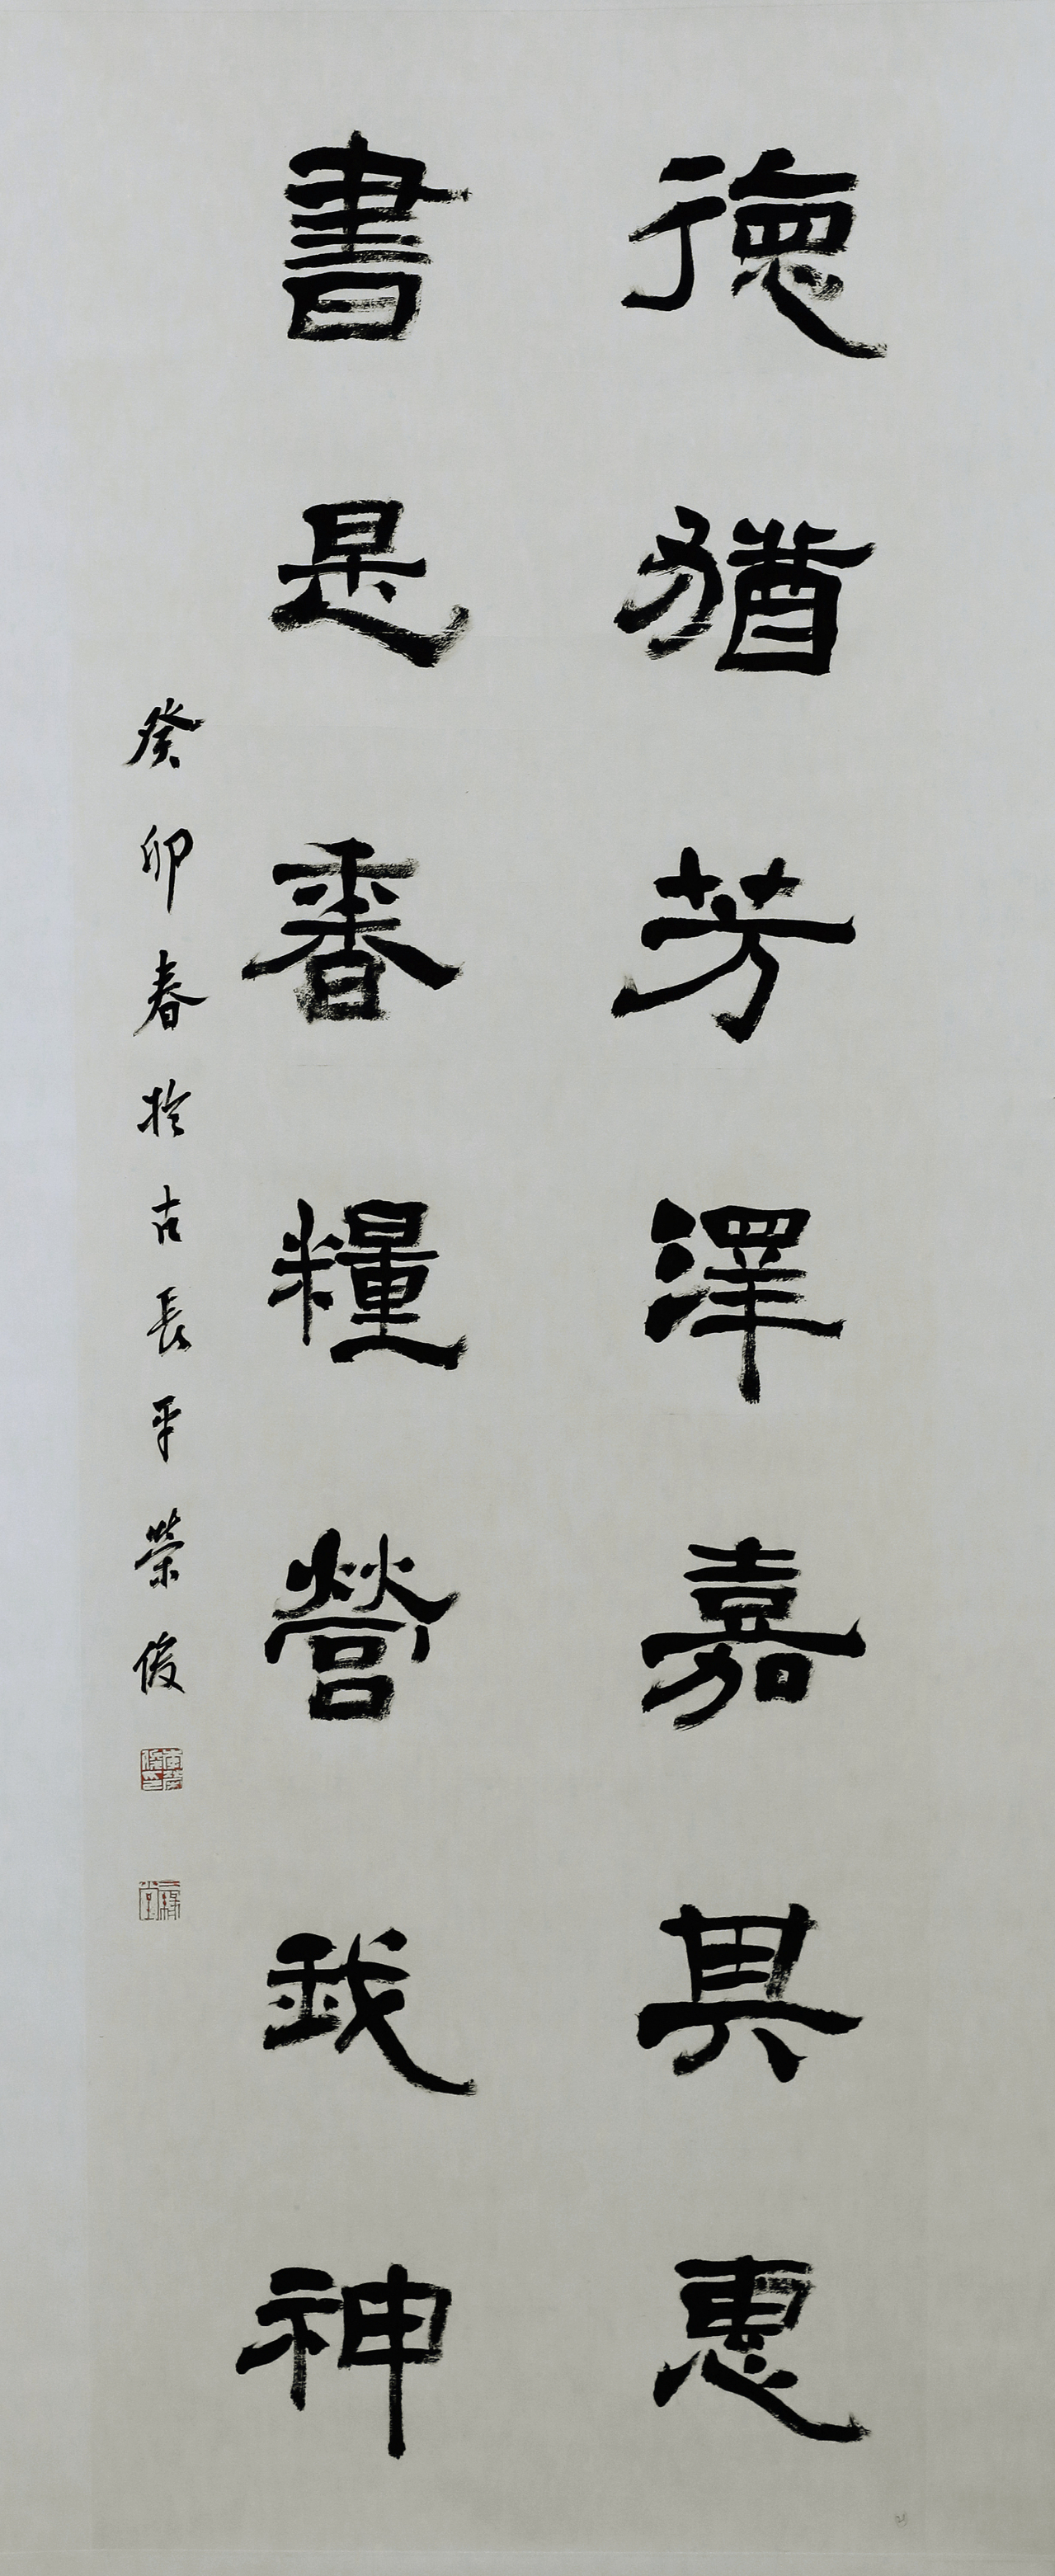 德猶芳澤嘉具惠
書是香糧營我神
癸卯春於古長平榮俊